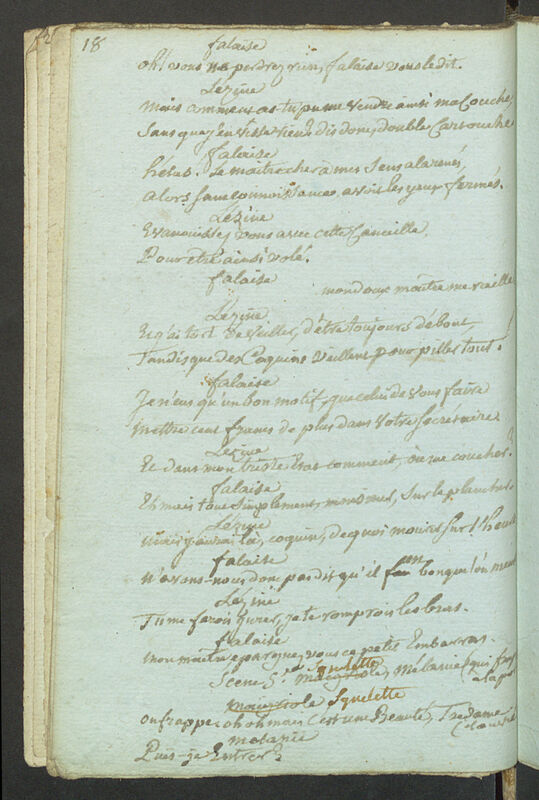 18
falaise
oh! vous ne perdrez rien, falaise vous le dit.
Lézine
mais comment as-tu pu me vendre ainsi ma Couche,
Sans que j'en visse rien dis donc, double Cartouche
falaise
hélas. Le maitre cher à mes Sens
alors Sans Connoissance, avoit les yeux fermés.
Lézine
Evanouissez vous avec cette Canaille,
Pour être ainsi volé.
falaise
mon doux maître me raille
Lézine
Et j'ai tort de veiller, d'être toujours débout,
Tandis que des Coquins veillent pour piller tout !
falaise
Je n'eus qu'un bon motif, que celui de vous faire
Mettre cent francs de plus dans votre Secrétaire.
Lézine
Et dans mon triste état comment, ou me coucher ?
falaise
Eh mais tout Simplement, Sur le plancher.
Lézine
mais j'aurai là, coquin, de quoi mourir Sur l'heure
falaise
n'avons-nous donc pas dit qu'il bon que l'on meure
Lézine
Tu me ferois jurer, je te romprois les bras.
falaise
mon maître épargnez vous ce petit Embarras.
Scene 5e Squelette, Mélanie (qui frappe
a la porte
Squelette
on frappe oh oh mais c'est une Beauté, Tredame
melanie
Puis-je Entrer ?